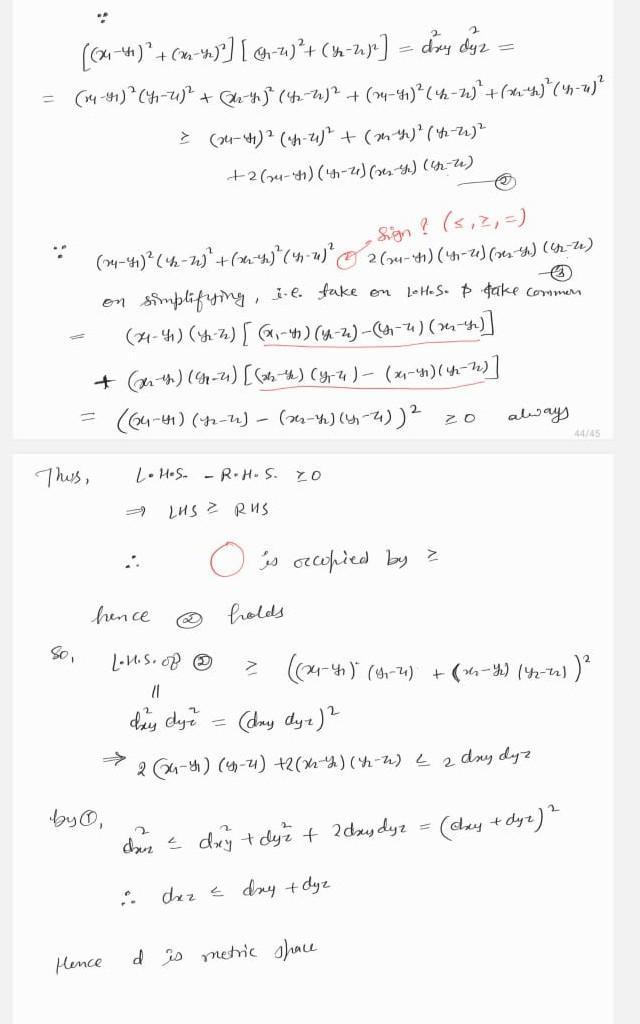 ∵
[(x₁-y₁)² + (x₂-y₂)²] [(y₁-z₁)² + (y₂-z₂)²] = d²xy d²yz =
= (x₁-y₁)² (y₁-z₁)² + (x₂-y₂)² (y₂-z₂)² + (x₁-y₁)² (y₂-z₂)² + (x₂-y₂)² (y₁-z₁)²
≥ (x₁-y₁)² (y₁-z₁)² + (x₂-y₂)² (y₂-z₂)²
+ 2(x₁-y₁) (y₁-z₁) (x₂-y₂) (y₂-z₂)
— ②
Sign? (≤, ≥, =)
∵ (x₁-y₁)² (y₂-z₂)² + (x₂-y₂)² (y₁-z₁)² ○ 2(x₁-y₁) (y₁-z₁) (x₂-y₂) (y₂-z₂)
— ③
on simplifying, i.e. take on L.H.S. & take common
= (x₁-y₁) (y₂-z₂) [(x₁-y₁) (y₂-z₂) - (y₁-z₁) (x₂-y₂)]
+ (x₂-y₂) (y₁-z₁) [(x₂-y₂) (y₁-z₁) - (x₁-y₁) (y₂-z₂)]
= ((x₁-y₁) (y₂-z₂) - (x₂-y₂) (y₁-z₁))² ≥ 0 always
44/45
Thus, L.H.S. - R.H.S. ≥ 0
⇒ LHS ≥ RHS
∴ ○ is occupied by ≥
hence ② holds
So, L.H.S. of ② ≥ ((x₁-y₁) (y₁-z₁) + (x₂-y₂) (y₂-z₂))²
||
d²xy d²yz = (dxy dyz)²
⇒ 2(x₁-y₁) (y₁-z₁) + 2(x₂-y₂) (y₂-z₂) ≤ 2 dxy dyz
by ①,
d²xz ≤ d²xy + d²yz + 2dxy dyz = (dxy + dyz)²
∴ dxz ≤ dxy + dyz
Hence d is metric space